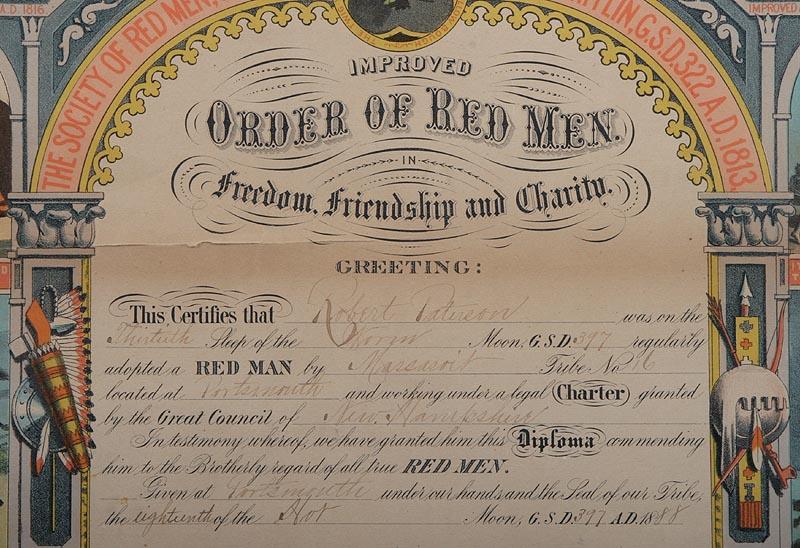 A.D. 1816
IMPROVED
THE SOCIETY OF RED MEN,
G.S.D. 322 A.D. 1813.
IMPROVED
ORDER OF RED MEN.
IN
Freedom, Friendship and Charity.
GREETING:
This Certifies that Robert Paterson was on the
Thirtieth Sleep of the Worm Moon, G.S.D. 397 regularly
adopted a RED MAN by Massasoit Tribe No 16
located at Portsmouth and working under a legal Charter granted
by the Great Council of New Hampshire
In testimony whereof, we have granted him this Diploma commending
him to the Brotherly regard of all true RED MEN.
Given at Portsmouth under our hands and the Seal of our Tribe,
the eighteenth of the Hot Moon, G.S.D. 397 A.D. 1888